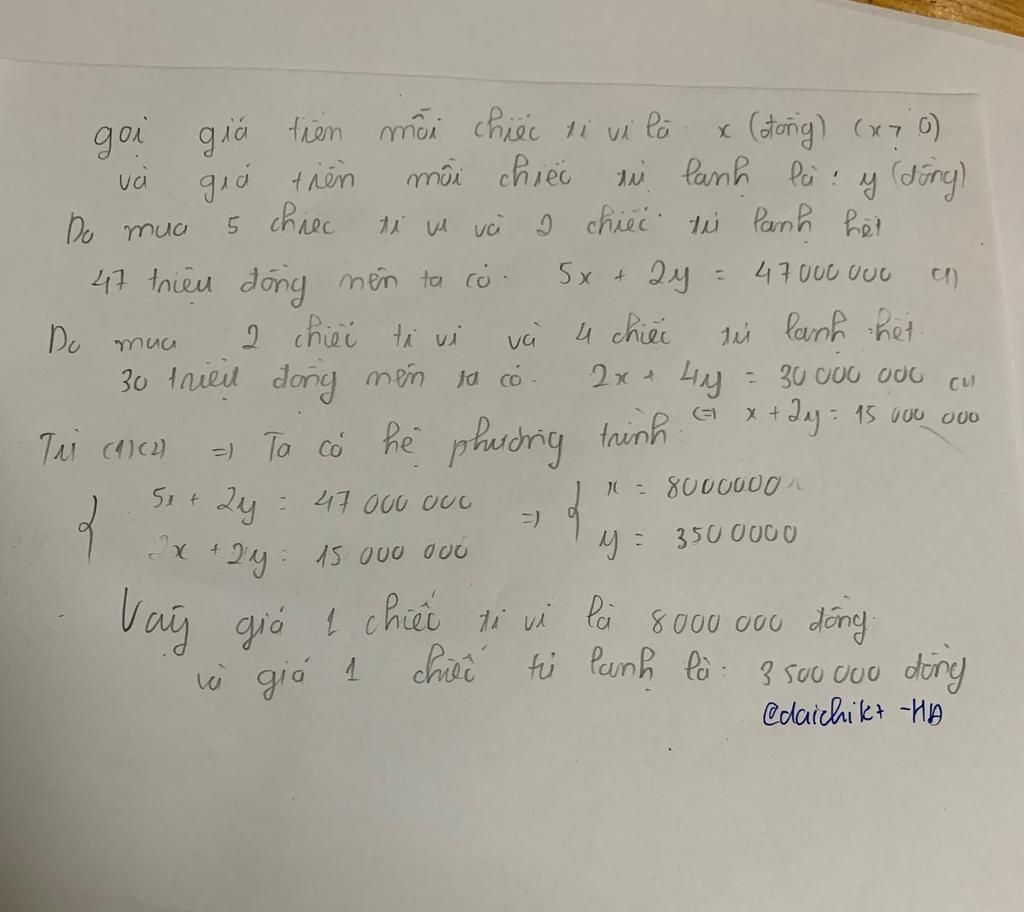 gọi giá tiền mỗi chiếc ti vi là x (đồng) (x > 0)
và giá tiền mỗi chiếc tủ lạnh là : y (đồng)
Do mua 5 chiếc ti vi và 2 chiếc tủ lạnh hết
47 triệu đồng nên ta có : 5x + 2y = 47000 000 (1)
Do mua 2 chiếc ti vi và 4 chiếc tủ lạnh hết
30 triệu đồng nên ta có . 2x + 4y = 30 000 000 (2)
<=> x + 2y = 15 000 000
Từ (1)(2) => Ta có hệ phương trình :
{ 5x + 2y = 47 000 000 => { x = 8000000
2x + 2y = 15 000 000 y = 3500000
Vậy giá 1 chiếc ti vi là 8000 000 đồng
và giá 1 chiếc tủ lạnh là : 3 500 000 đồng
@daichikt -HA